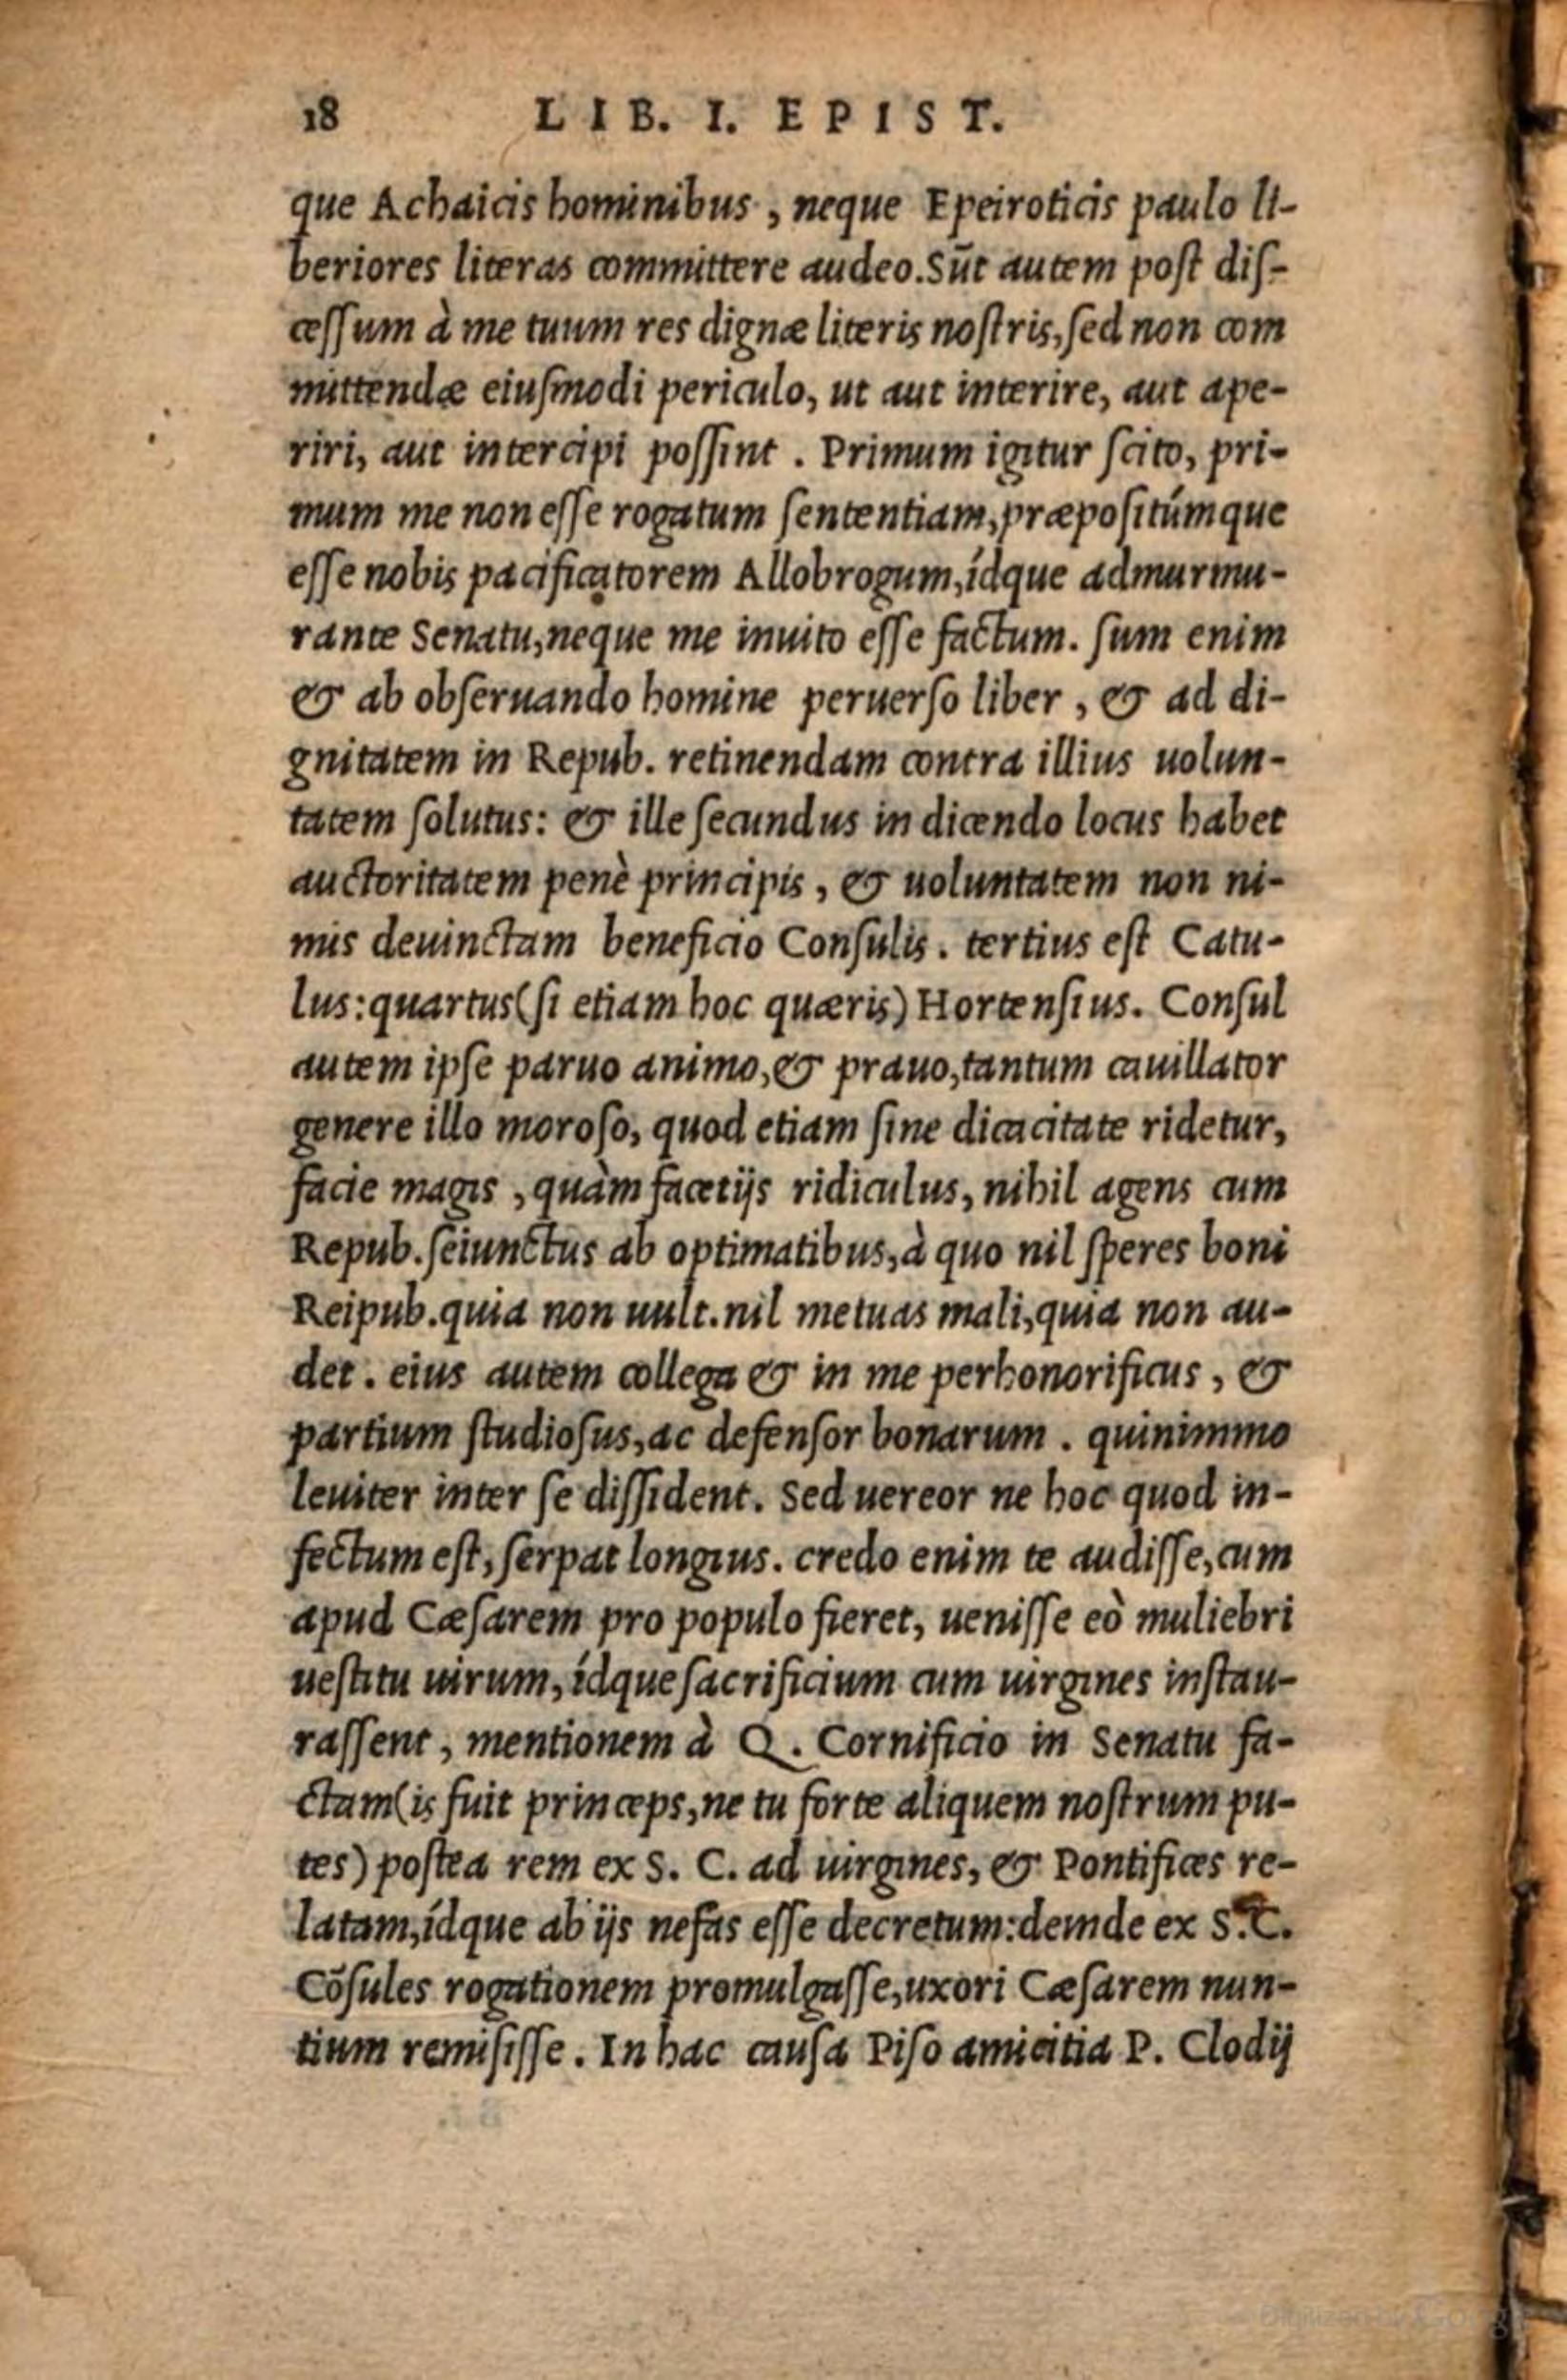 18 LIB. I. EPIST.
que Achaicis hominibus, neque Epeiroticis paulo li-
beriores literas committere audeo. Sūt autem post dis-
cessum à me tuum res dignæ literis nostris, sed non com
mittendæ eiusmodi periculo, ut aut interire, aut ape-
riri, aut intercipi possint. Primum igitur scito, pri-
mum me non esse rogatum sententiam, præpositúmque
esse nobis pacificatorem Allobrogum, ídque admurmu-
rante Senatu, neque me inuito esse factum. sum enim
& ab obseruando homine peruerso liber, & ad di-
gnitatem in Repub. retinendam contra illius uolun-
tatem solutus: & ille secundus in dicendo locus habet
auctoritatem penè principis, & uoluntatem non ni-
mis deuinctam beneficio Consulis. tertius est Catu-
lus: quartus (si etiam hoc quæris) Hortensius. Consul
autem ipse paruo animo, & prauo, tantum cauillator
genere illo moroso, quod etiam sine dicacitate ridetur,
facie magis, quàm facetijs ridiculus, nihil agens cum
Repub. seiunctus ab optimatibus, à quo nil speres boni
Reipub. quia non uult. nil metuas mali, quia non au-
det. eius autem collega & in me perhonorificus, &
partium studiosus, ac defensor bonarum. quinimmo
leuiter inter se dissident. Sed uereor ne hoc quod in-
fectum est, serpat longius. credo enim te audisse, cum
apud Cæsarem pro populo fieret, uenisse eò muliebri
uestitu uirum, ídque sacrificium cum uirgines instau-
rassent, mentionem à Q. Cornificio in Senatu fa-
ctam (is fuit princeps, ne tu forte aliquem nostrum pu-
tes) postea rem ex S. C. ad uirgines, & Pontifices re-
latam, ídque ab ijs nefas esse decretum: deinde ex S. C.
Cōsules rogationem promulgasse, uxori Cæsarem nun-
tium remisisse. In hac causa Piso amicitia P. Clodij